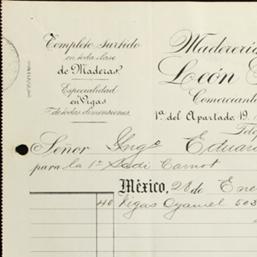 Completo Surtido
en toda clase
de Maderas.
Especialidad
en Vigas
de todas dimensiones.
Maderería
León
Comerciante
1ª del Apartado 19
Señor Ingº Eduar
para la 1ª Sadi Carnot
México, 28 de Ene
40 Vigas Oyamel 503